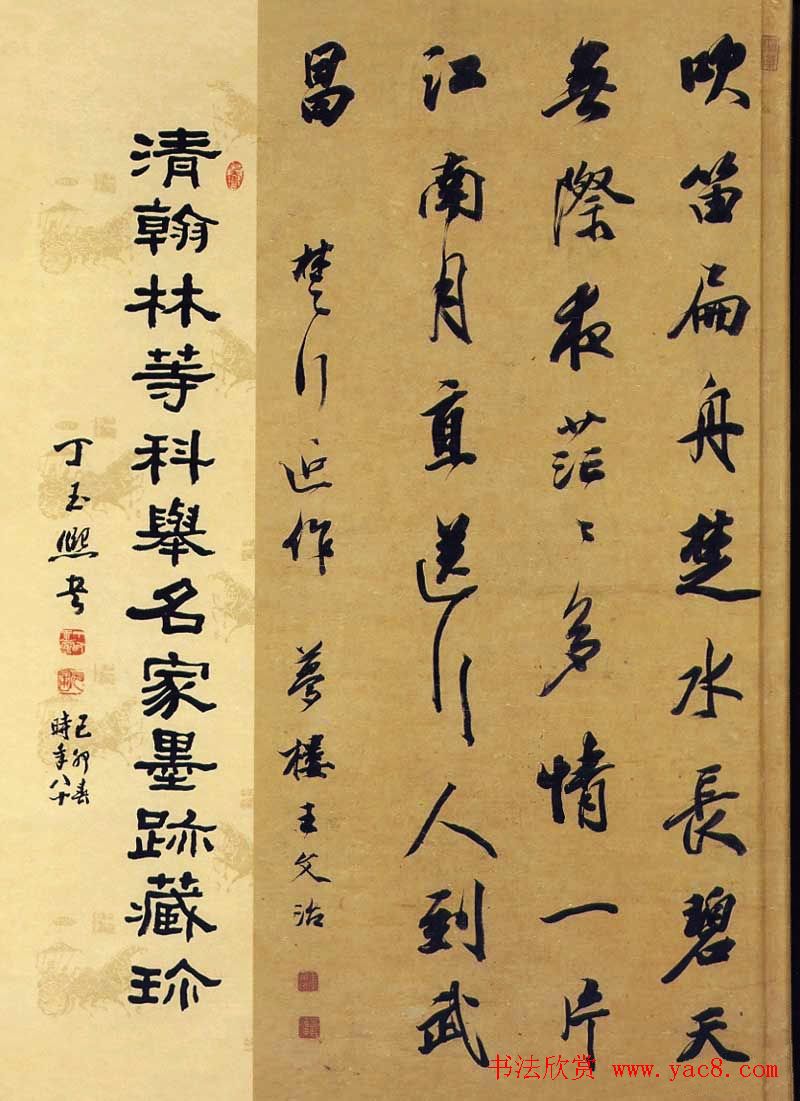 吹笛扁舟楚水長碧天
無際夜茫〻多情一片
江南月直送行人到武
昌 楚行近作 夢樓王文治
清翰林等科舉名家墨跡藏珍
丁玉熙书
己卯春
時年八十
书法欣赏 www.yac8.com